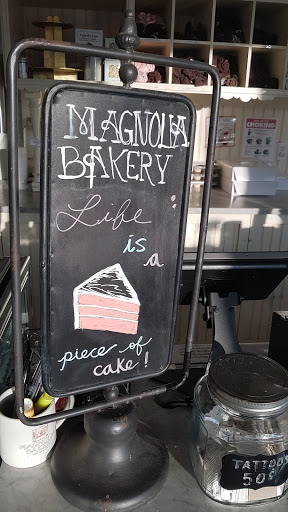 MAGNOLIA
BAKERY
Life
is
a
piece of
cake!
CHOKING
TATTOOS
50¢